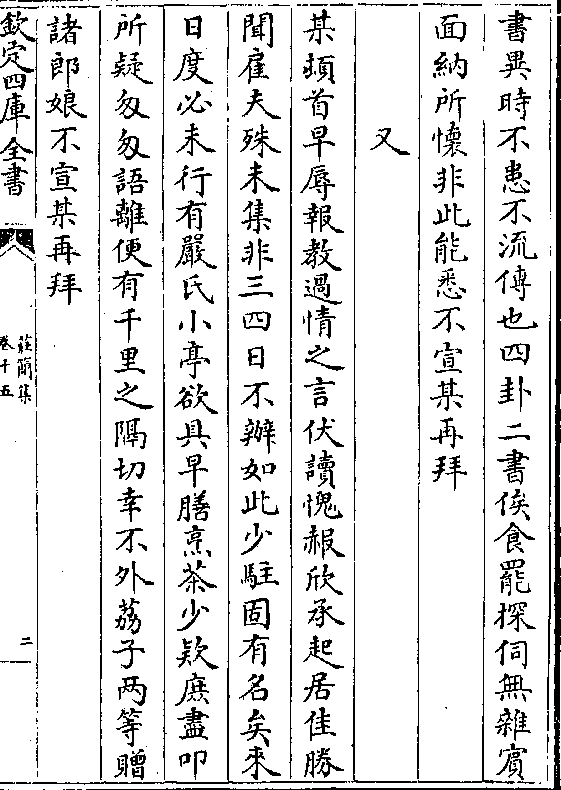 書異時不患不流傳也四卦二書俟食罷探伺無雜賓
面納所懷非此能悉不宣某再拜
又
某頓首早辱報教過情之言伏讀愧赧欣承起居佳勝
聞雇夫殊未集非三四日不辦如此少駐固有名矣來
日度必未行有嚴氏小亭欲具早膳烹茶少欵庶盡叩
所疑匆匆語離便有千里之隔切幸不外荔子两等贈
諸郎娘不宣某再拜
欽定四庫全書
莊簡集
卷十五
二